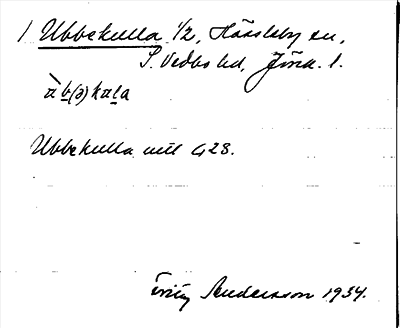 1 Ubbekulla 1/2, Hässleby sn,
S. Vedbo hd, Jönk. l.
àb(ə)kala
Ubbekulla mtl G28.
Fritz Andersson 1934.